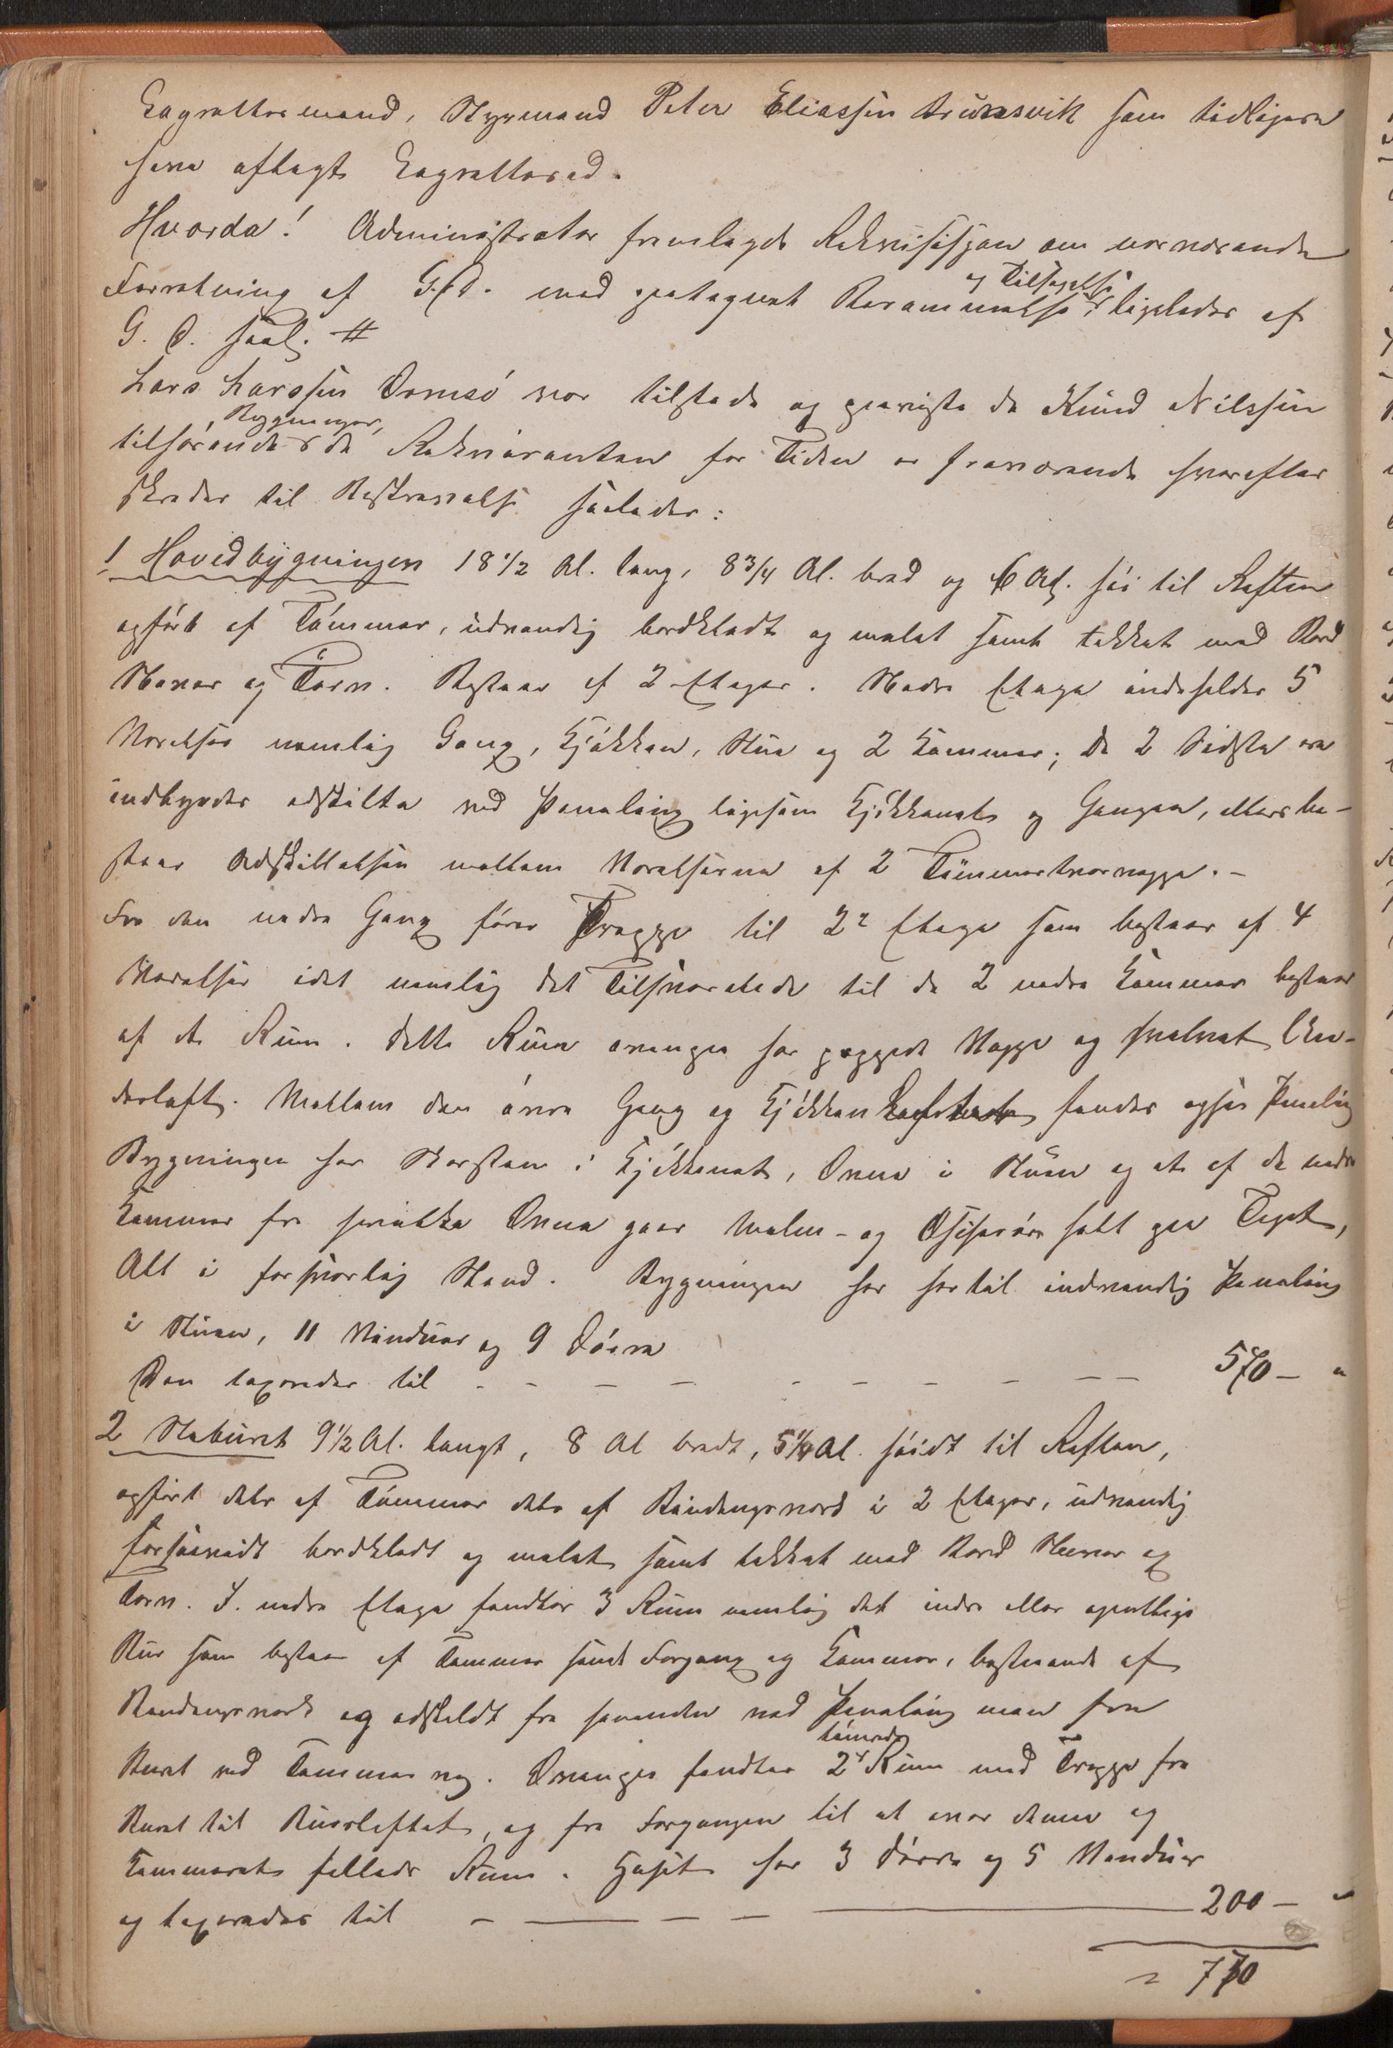 Lagrettesmænd, Styrmand Peter Eliassen Trunsvik som tidligere
have aflagt Lagrettesed.
Hvorda! Administrator fremlagde Rekvisisjon om nærværende
Forretning af G. D. med paategnet Berammelse og Tilsigelse ligeledes af
G. D. saal. #
Lars Larssen Ormsö var tilstede og paaviste de Knud Nilssen
tilhørende Bygninger, da Rekvirenten for Tiden er fraværende hvorefter
skredes til Beskrivelse saaledes:
1 Hovedbygningen 18 1/2 Al. lang, 8 3/4 Al. bred og 6 Al. høi til Raften
opført af Tømmer, udvendig bordklædt og malet samt tækket med Bord
Næver og Törv. Bestaar af 2 Etager. Nedre Etage indeholder 5
Værelser nemlig Gang, Kjøkken, Stue og 2 Kammer; de 2 Sidste ere
indbyrdes adskilte ved Paneling ligesom Kjøkkenet og Gangen, ellers be-
staar Adskillelsen mellem Værelserne af 2 Tømmertvervægge. -
Fra den nedre Gang fører Trappe til 2e Etage som bestaar af 4
Værelser idet nemlig det Tilsvarende til de 2 nedre Kammer bestaar
af et Rum. Dette Rum ovenpaa har pappede Vægge og hvælvet Len-
derloft. Mellem den øvre Gang og Kjøkken findes ogsaa Paneling
Bygningen har Skorsten i Kjøkkenet, Ovne i Stuen og et af de nedre
Kammer fra hvilke Ovne gaar Malm- og rør helt paa Taget,
Alt i forsvarlig Stand. Bygningen har hertil indvendig Paneling
i Stuen, 11 Vinduer og 9 Döre
Den taxeredes til - - - - - - - - - 570 - "
2 Staburet 9 1/2 Al. langt, 8 Al bredt, 5 1/4 Al. høidt til Raften,
opført dels af Tømmer dels af Bindingsverk i 2 Etager, udvendig
forsaavidt bordklædt og malet samt tækket med Bord Næver og
Torv. I nedre Etage findtes 3 Rum nemlig det indre eller egentlige
Bur som bestaar af Tømmer samt Forgang og Kammer, bestaaende af
Bindingsverk og adskildt fra hverandre ved Paneling men fra
Buret ved Tømmer væg. Ovenpaa findtes 2 tømrede Rum med Trappe fra
Buret til Bursloftet, og fra Forgangen til et over denne og
Kammeret fælleds Rum. Huset har 3 Dörre og 5 Vinduer
og taxeredes til - - - - - 200 - "
= 770